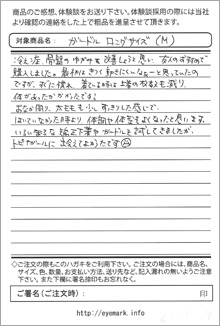 商品のご感想、体験談をお送り下さい。体験談採用の際には当社
より確認の連絡をした上で粗品を進呈させて頂きます。
対象商品名: ガードル ロングサイズ (M)
冷え症、骨盤のゆがみを改善しようと思い、友人のすすめで
購入しました。最初はきつく動きにくいなぁーと思っていたの
ですが、すぐに慣れ、着ている時は上着の枚数も減り、
体があったかかったです!
おなか周り、太ももも少しすっきりした感じで、
はいていなかった時より、体調や体型もよくなったと思います。
いろいろ知る 矯正下着やガードルを試してきましたが、
トピナガールに出会えてよかったです
◇ご注文の際もこのハガキをご利用下さい。ご注文の場合には、商品名、
サイズ、色、数量、お支払い方法、送り先など、記入漏れの無いようご注意
下さい。また下欄に署名捺印もお忘れなく。
ご署名(ご注文時): 印
http://eyemark.info